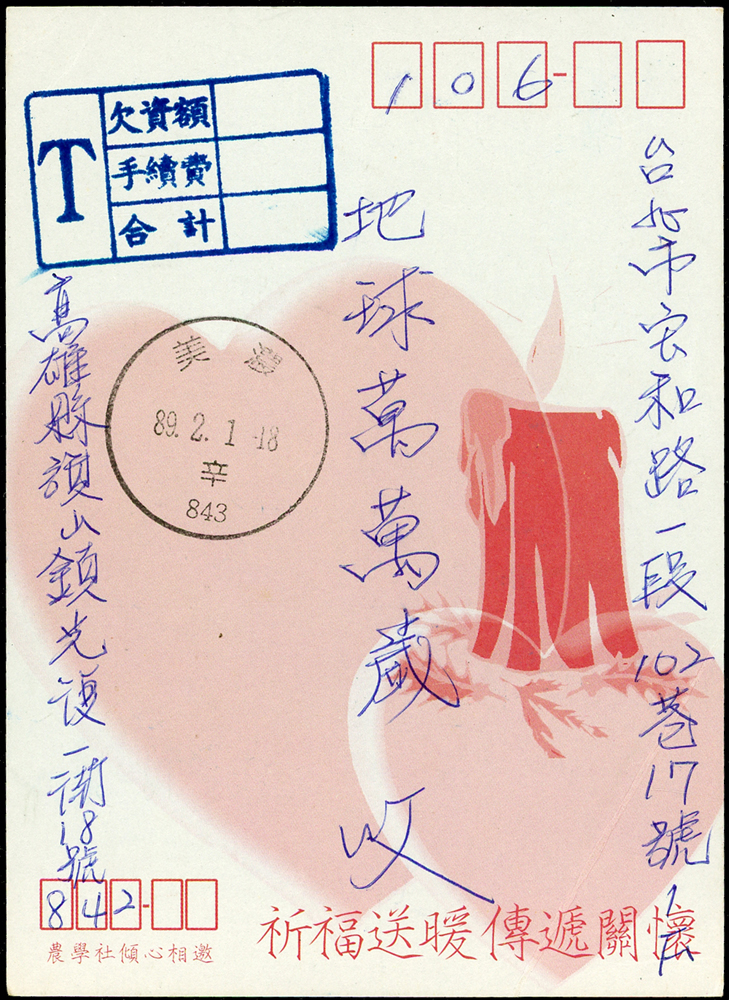 106
台北市安和路一段102巷17號1F
地球萬萬歲 收
T
欠資額
手續費
合計
美濃
89.2.1 18
辛
843
高雄縣旗山鎮光復一街18號
842
農學社傾心相邀
祈福送暖傳遞關懷